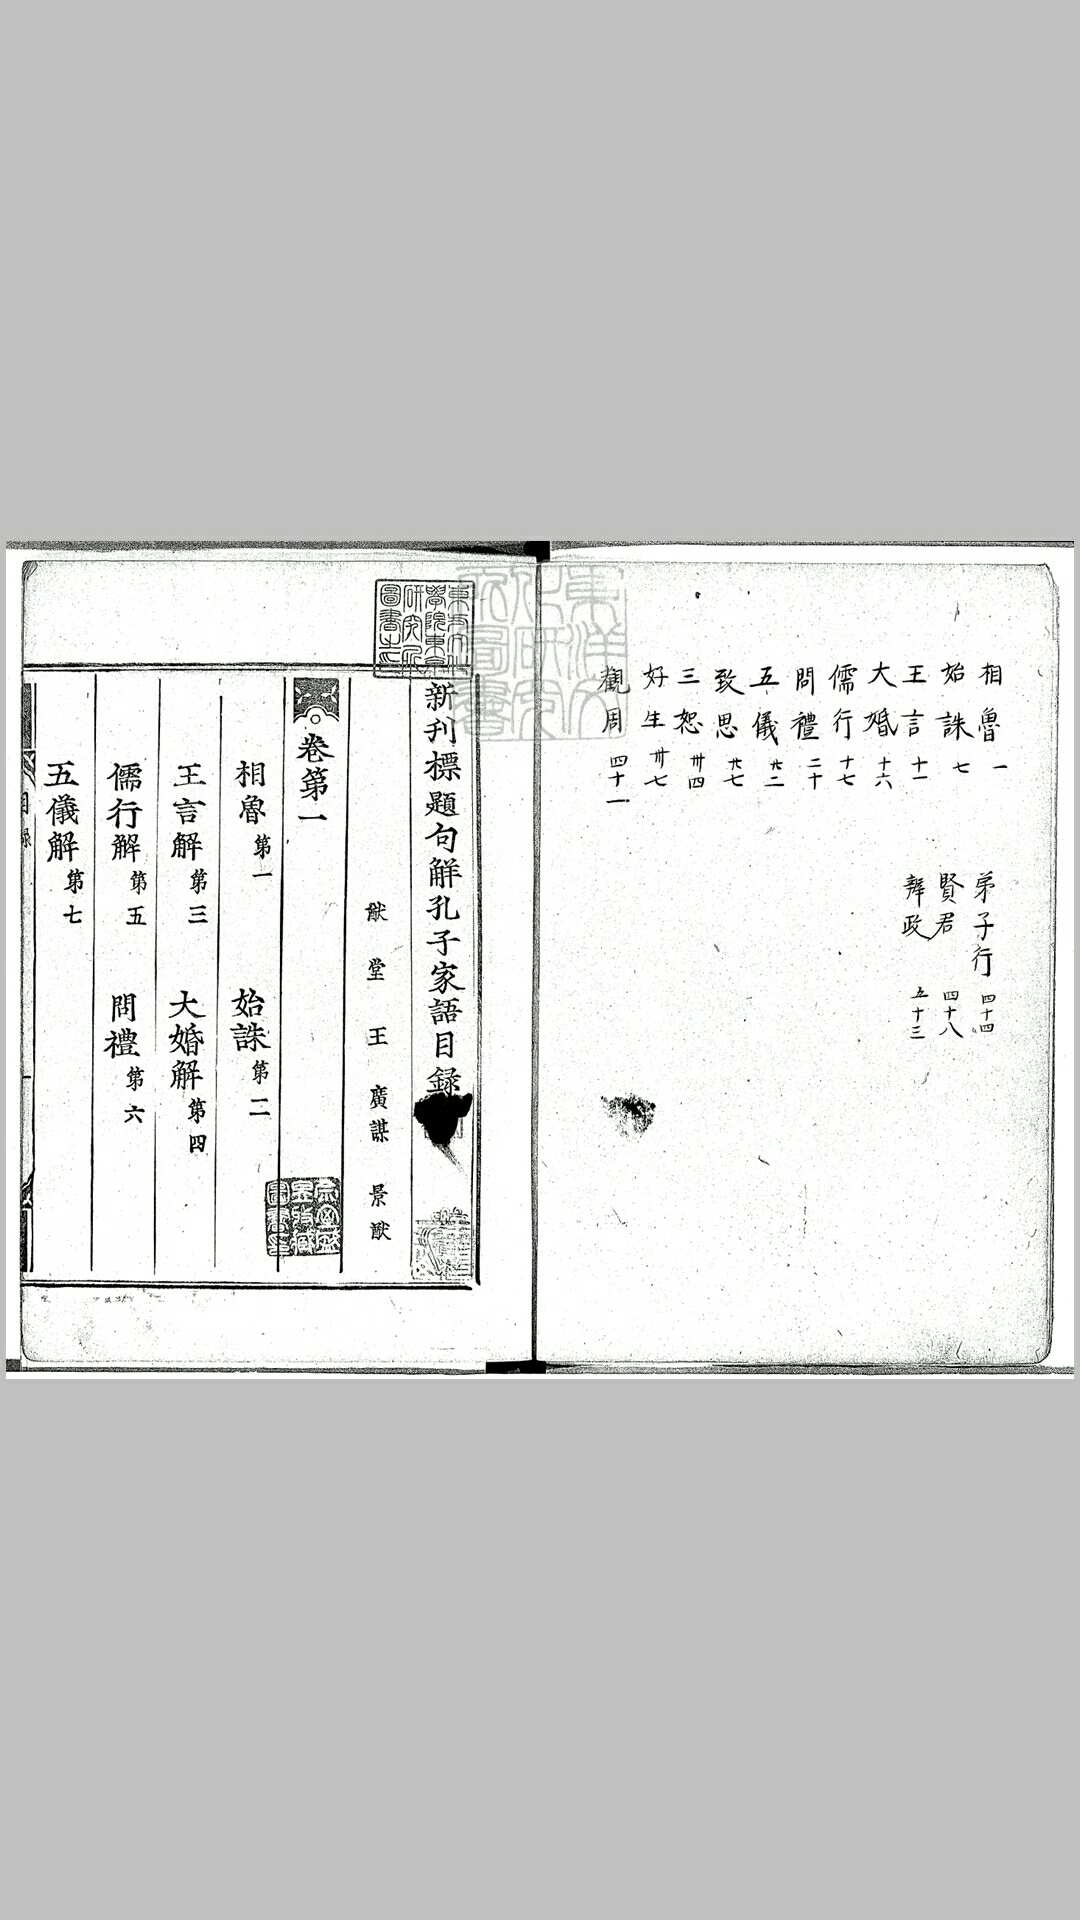 相魯 一
始誅 七
王言 十一
大婚 十六
儒行 十七
問禮 二十
五儀 廿二
致思 廿七
三恕 卅四
好生 卅七
觀周 四十一
弟子行 四十四
賢君 四十八
辯政 五十三
新刊標題句解孔子家語目錄
猷堂 王廣謀 景猷
卷第一
相魯第一 始誅第二
王言解第三 大婚解第四
儒行解第五 問禮第六
五儀解第七
目錄
東方文化
學院東京
研究所
圖書之印